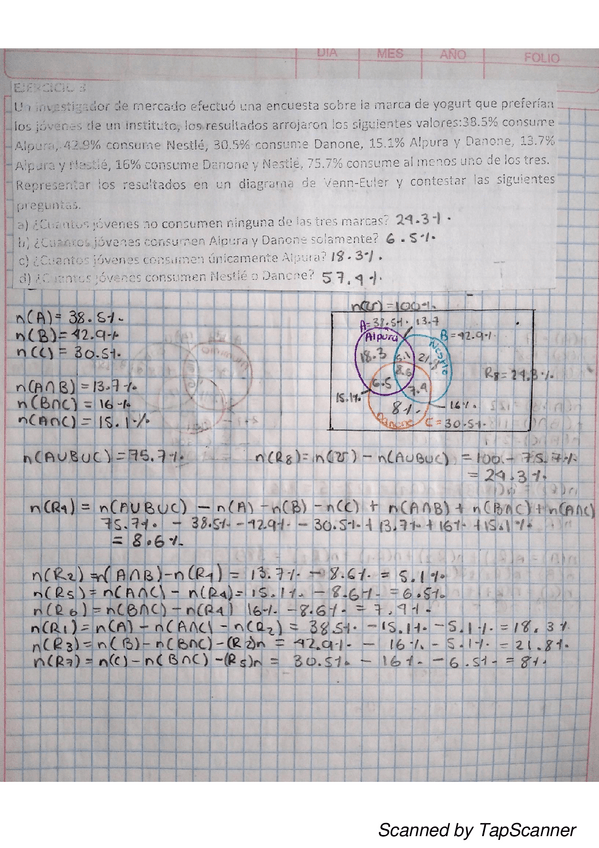 DIA MES AÑO FOLIO
EJERCICIO 3
Un investigador de mercado efectuó una encuesta sobre la marca de yogurt que preferían
los jóvenes de un instituto, los resultados arrojaron los siguientes valores:38.5% consume
Alpura, 42.9% consume Nestlé, 30.5% consume Danone, 15.1% Alpura y Danone, 13.7%
Alpura y Nestlé, 16% consume Danone y Nestlé, 75.7% consume al menos uno de los tres.
Representar los resultados en un diagrama de Venn-Euler y contestar las siguientes
preguntas.
a) ¿Cuantos jóvenes no consumen ninguna de las tres marcas? 24.3%.
b) ¿Cuantos jóvenes consumen Alpura y Danone solamente? 6.5%
c) ¿Cuantos jóvenes consumen únicamente Alpura? 18.3%.
d) ¿Cuantos jóvenes consumen Nestlé o Danone? 57.4%
n(A)= 38.5%
n(B)= 42.9%
n(C)= 30.5%
n(A∩B)=13.7%
n(B∩C)= 16%
n(A∩C)= 15.1%
n(U)=100%
A=38.5% 13.7
B=42.9%
Alpura
18.3
8.6
6.5
7.4
8%
Danone
15.1%
16%
C=30.5%
R8=24.3%
n(AUBUC)=75.7% n(R8)=n(U)-n(AUBUC) =100-75.7%
=24.3%
n(R4)= n(AUBUC) -n(A) -n(B) -n(C) + n(A∩B) + n(B∩C) +n(A∩C)
75.7% - 38.5% -42.9% - 30.5%+13.7%+16%+15.1%
= 8.6%
n(R2)=n(A∩B)-n(R4)= 13.7% -8.6% = 5.1%
n(R5)=n(A∩C) - n(R4)= 15.1% - 8.6% =6.5%
n(R6)=n(B∩C)-n(R4) 16% -8.6% = 7.4%
n(R1)=n(A)-n(A∩C)-n(R2)= 38.5% -15.1% -5.1%=18.3%
n(R3)=n(B)-n(B∩C)-(R2)n = 42.9% - 16% -5.1% =21.8%
n(R7)=n(C)-n(B∩C)-(R5)n = 30.5% - 16% -6.5% =8%
Scanned by TapScanner